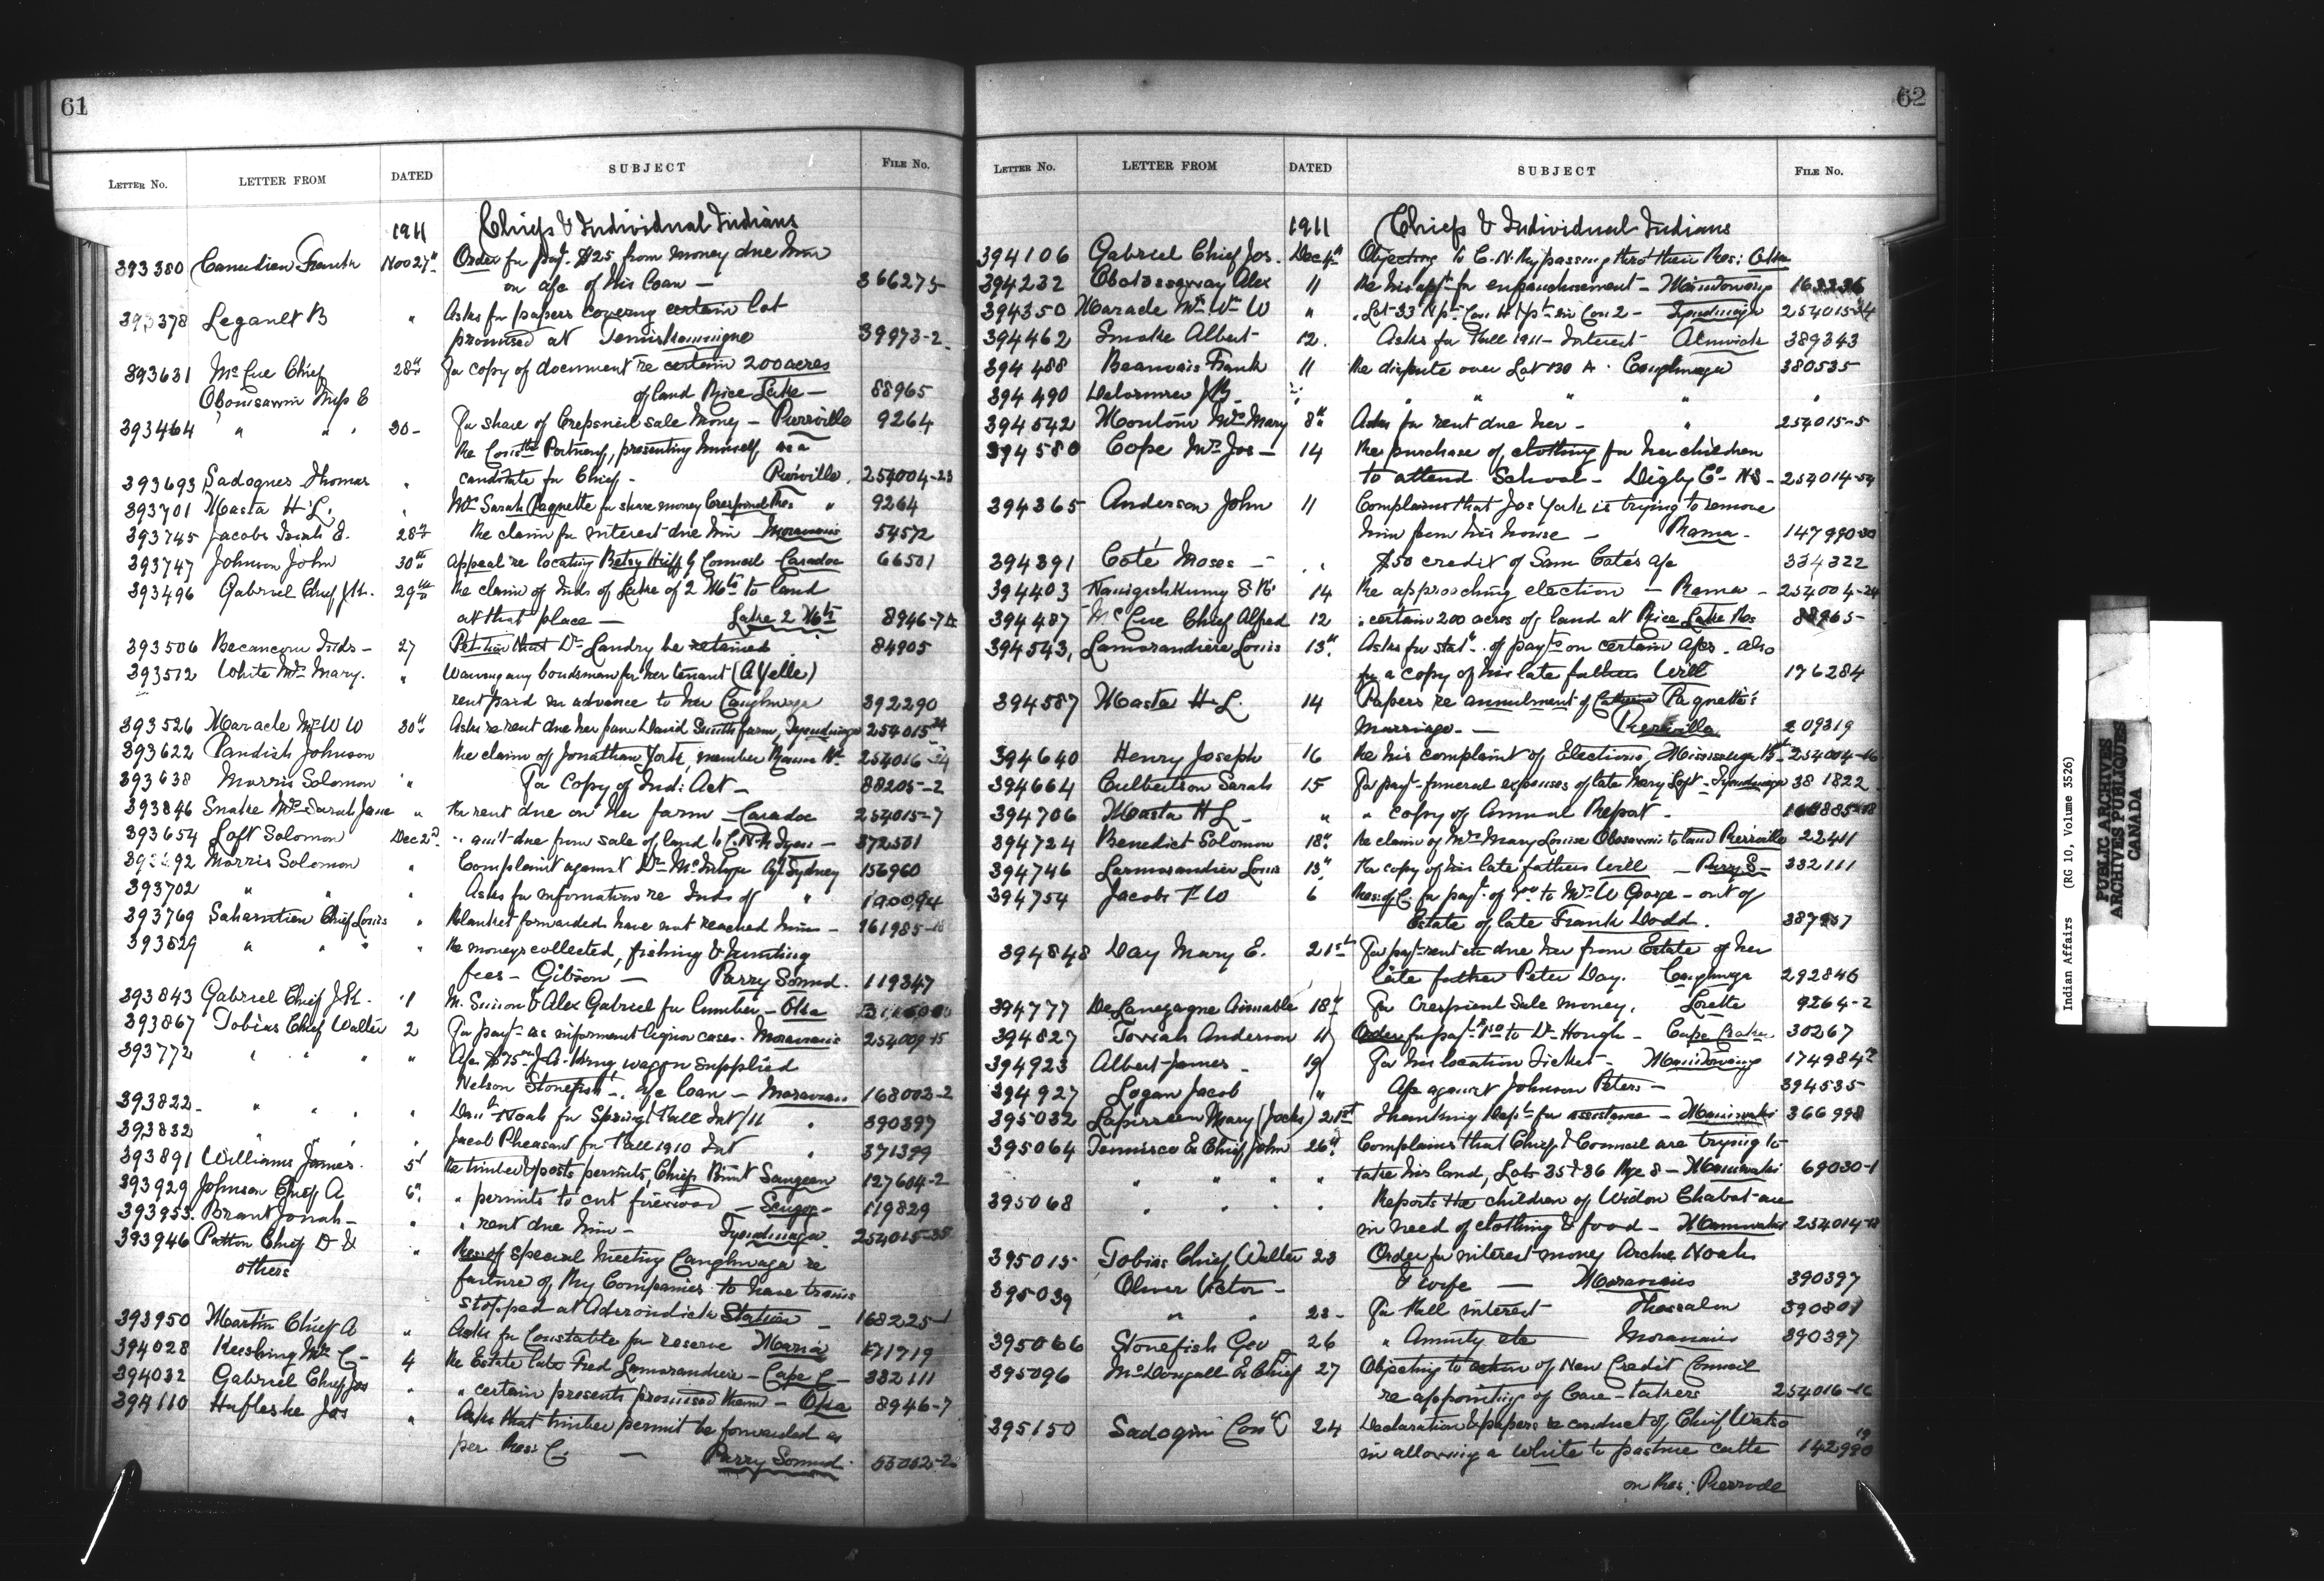 61
LETTER No. LETTER FROM DATED SUBJECT FILE No.
1911 Chiefs & Individual Indians
393380 Canadian Frank Nov 27th Order for payt. $25 from money due him
on a/c of his loan — 366275
393378 Legault B " Asks for papers covering certain lot
promised at Temiskamingue 39973-2
393631 McCue Chief 28th For copy of document re certain 200 acres
of land Rice Lake — 88965
Obomsawin Miss E
393464 " " 30 - For share of Crepieul sale money — Pierreville 9264
Re Portneuf, presenting himself as a
393693 Sadoques Thomas " candidate for Chief - Pierreville. 254004-23
393701 Masta H L. Mrs Sarah Paquette for share money " 9264
393745 Jacobs Isaiah E. 28th Re claim for interest due him Moravians 54572
393747 Johnson John 30th Appeal re locating Betsy by Council Caradoc 66501
393496 Gabriel Chief 29th Re claim of Inds of Lake of 2 Mts to land
at that place — Lake 2 Mts 8946-7
393506 Becancour Inds — 27 Petition that Dr Landry be retained 84905
393512 White Mrs Mary. " (A Yelle)
rent paid in advance to her Caughnawaga 392290
393526 Maracle Mrs W W 30th Asks re rent due her from David Smiths farm, Tyendinaga 254015-24
393622 Yandish Johnson Re claim of Jonathan York, member Rama 254016
393638 Morris Solomon " For copy of Ind: Act — 88205-2
393846 Snake Mrs Sarah Jane " Re rent due on her farm — Caradoc 254015-7
393654 Loft Solomon Dec 2nd " am't due from sale of land to C.N.R Tyen — 372501
Morris Solomon " Complaint against Dr McIntyre Agt Sydney 156960
393702 " " " Asks for information re Inds of " 190094
393769 Sahanatien Chief Louis " Blanket forwarded have not reached him —
393829 " " " " Re moneys collected, fishing & hunting
fees — Gibson — Parry Sound. 119347
393843 Gabriel Chief 1 M. Simon & Alex Gabriel for lumber — Oka
393867 Tobias Chief Walter 2 For payt as informant liquor cases. Moravians 254009-15
393772 " " " " A/c $75 J.A. King, wagon supplied
Nelson Stonefish. a/c loan — Moravian 168002-2
393822 " " " " Noah for Spring & Fall Int/11 " 390397
393832 " " " " Jacob Pheasant for Fall 1910 Int " 371399
393891 Williams James. 5th Re timber & posts permits, Chiefs Point Saugeen 127604-2
393929 Johnson Chief A 6th " permits to cut firewood — Scugog - 119829
393953 Brant Jonah — " " rent due him — Tyendinaga 254015-35
393946 Patton Chief D & " Res: of special meeting Caughnawaga re
others failure of Ry Companies to have trains
stopped at Adirondick Station — 168225-1
393950 Martin Chief A " Asks for Constable for reserve Maria 171719
394028 Keeshig Mrs C - 4 Re Estate late Fred Lamorandiere — Cape C — 382111
394032 Gabriel Chief Jos " " certain presents promised them — Oka 8946-7
394110 Jos " Asks that timber permit be forwarded as
per Res: C. — Parry Sound. 55052-2
62
LETTER No. LETTER FROM DATED SUBJECT FILE No.
1911 Chiefs & Individual Indians
394106 Gabriel Chief Jos. Dec 4th Objecting to C.N. Ry passing thro their Res: Oka
394232 Obotossoway Alex 11 Re his appt for enfranchisement — Manitowaning
394350 Marade Mrs Wm W " Lot 33 Con 2 — Tyendinaga 254015-24
394462 Smoke Albert 12. Asks for Fall 1911 Interest Alnwick 389343
394488 Beauvais Frank 11 Re dispute over Lot 130 A. Caughnawaga 380535
394490 Delormier J B. " " " " "
394542 Montour Mrs Mary 8th Asks for rent due her — " 254015-5
394580 Cope Mrs Jos — 14 Re purchase of clothing for her children
to attend School — Digby Co NS — 254014-54
394365 Anderson John 11 Complains that Jos York is trying to remove
him from his house — Rama - 147990-30
394391 Coté Moses — " $50 credit of Sam Coté's a/c 334322
394403 Nanigishkung 14 Re approaching election — Rama — 254004-24
394487 McCue Chief Alfred 12 " certain 200 acres of land at Rice Lake Res 88965-
394543 Lamorandiere Louis 13th Asks for statt. of payts on certain a/cs. also
for a copy of his late fathers Will 176284
394587 Masta H L. 14 Papers re annulment of Paquette's
marriage. — Pierreville 209319
394640 Henry Joseph 16 Re his complaint of Elections, Mississauga 254004-16
394664 Culbertson Sarah 15 For payt funeral expenses of late Mary Loft — Tyendinaga 381822
394706 Masta H L — " " copy of Annual Report —
394724 Benedict Solomon 18th Re claim of Mrs Mary Louise Obomsawin to land Pierreville 22411
394746 Larmorandier Louis 13th For copy of his late fathers Will — Parry S — 332111
394754 Jacobs F W 6 Res: of C. for payt. of to Mrs W George — out of
Estate of late Frank Dodd. 387957
394848 Day Mary E. 21st For payt rent etc due her from Estate of her
late father Peter Day. Caughnwga 292846
394777 18th For Crespieul Sale money, Lorette 9264-2
394827 Toviah Anderson 11 Order for payt to Dr Hough — Cape Croker 30267
394923 Albert James - 19 For his location Ticket — Manitowaning 174984
394927 Logan Jacob " A/c against Johnson Peters — 394535
395032 Lapierreen Mary (Jocko) 21st Thanking Dept for assistance — Maniwaki 366998
395064 Tennisco Ex Chief John 26th Complains that Chief & Council are trying to
" " " " take his land, Lots 35 & 36 Rge 8 — Maniwaki 69030-1
395068 " " " Reports the children of Widow Chabot are
in need of clothing & food — Maniwaki 254014-18
395015 Tobias Chief Walter 23 Order for interest money Archie Noah
395039 Oliver Victor — & wife — Moravians 390397
" " 23 - For Fall interest Thessalon 390801
395066 Stonefish Geo 26 " Annuity etc Moravians 390397
395096 McDougall Ex Chief 27 Objecting to action of New Credit Council
re appointing of Care-takers 254016-16
395150 Sadogin 24 Declaration & papers re conduct of Chief Watso
in allowing a white to pasture cattle 142990
on Res: Pierrvle
Indian Affairs (RG 10, Volume 3526)
PUBLIC ARCHIVES
ARCHIVES PUBLIQUES
CANADA